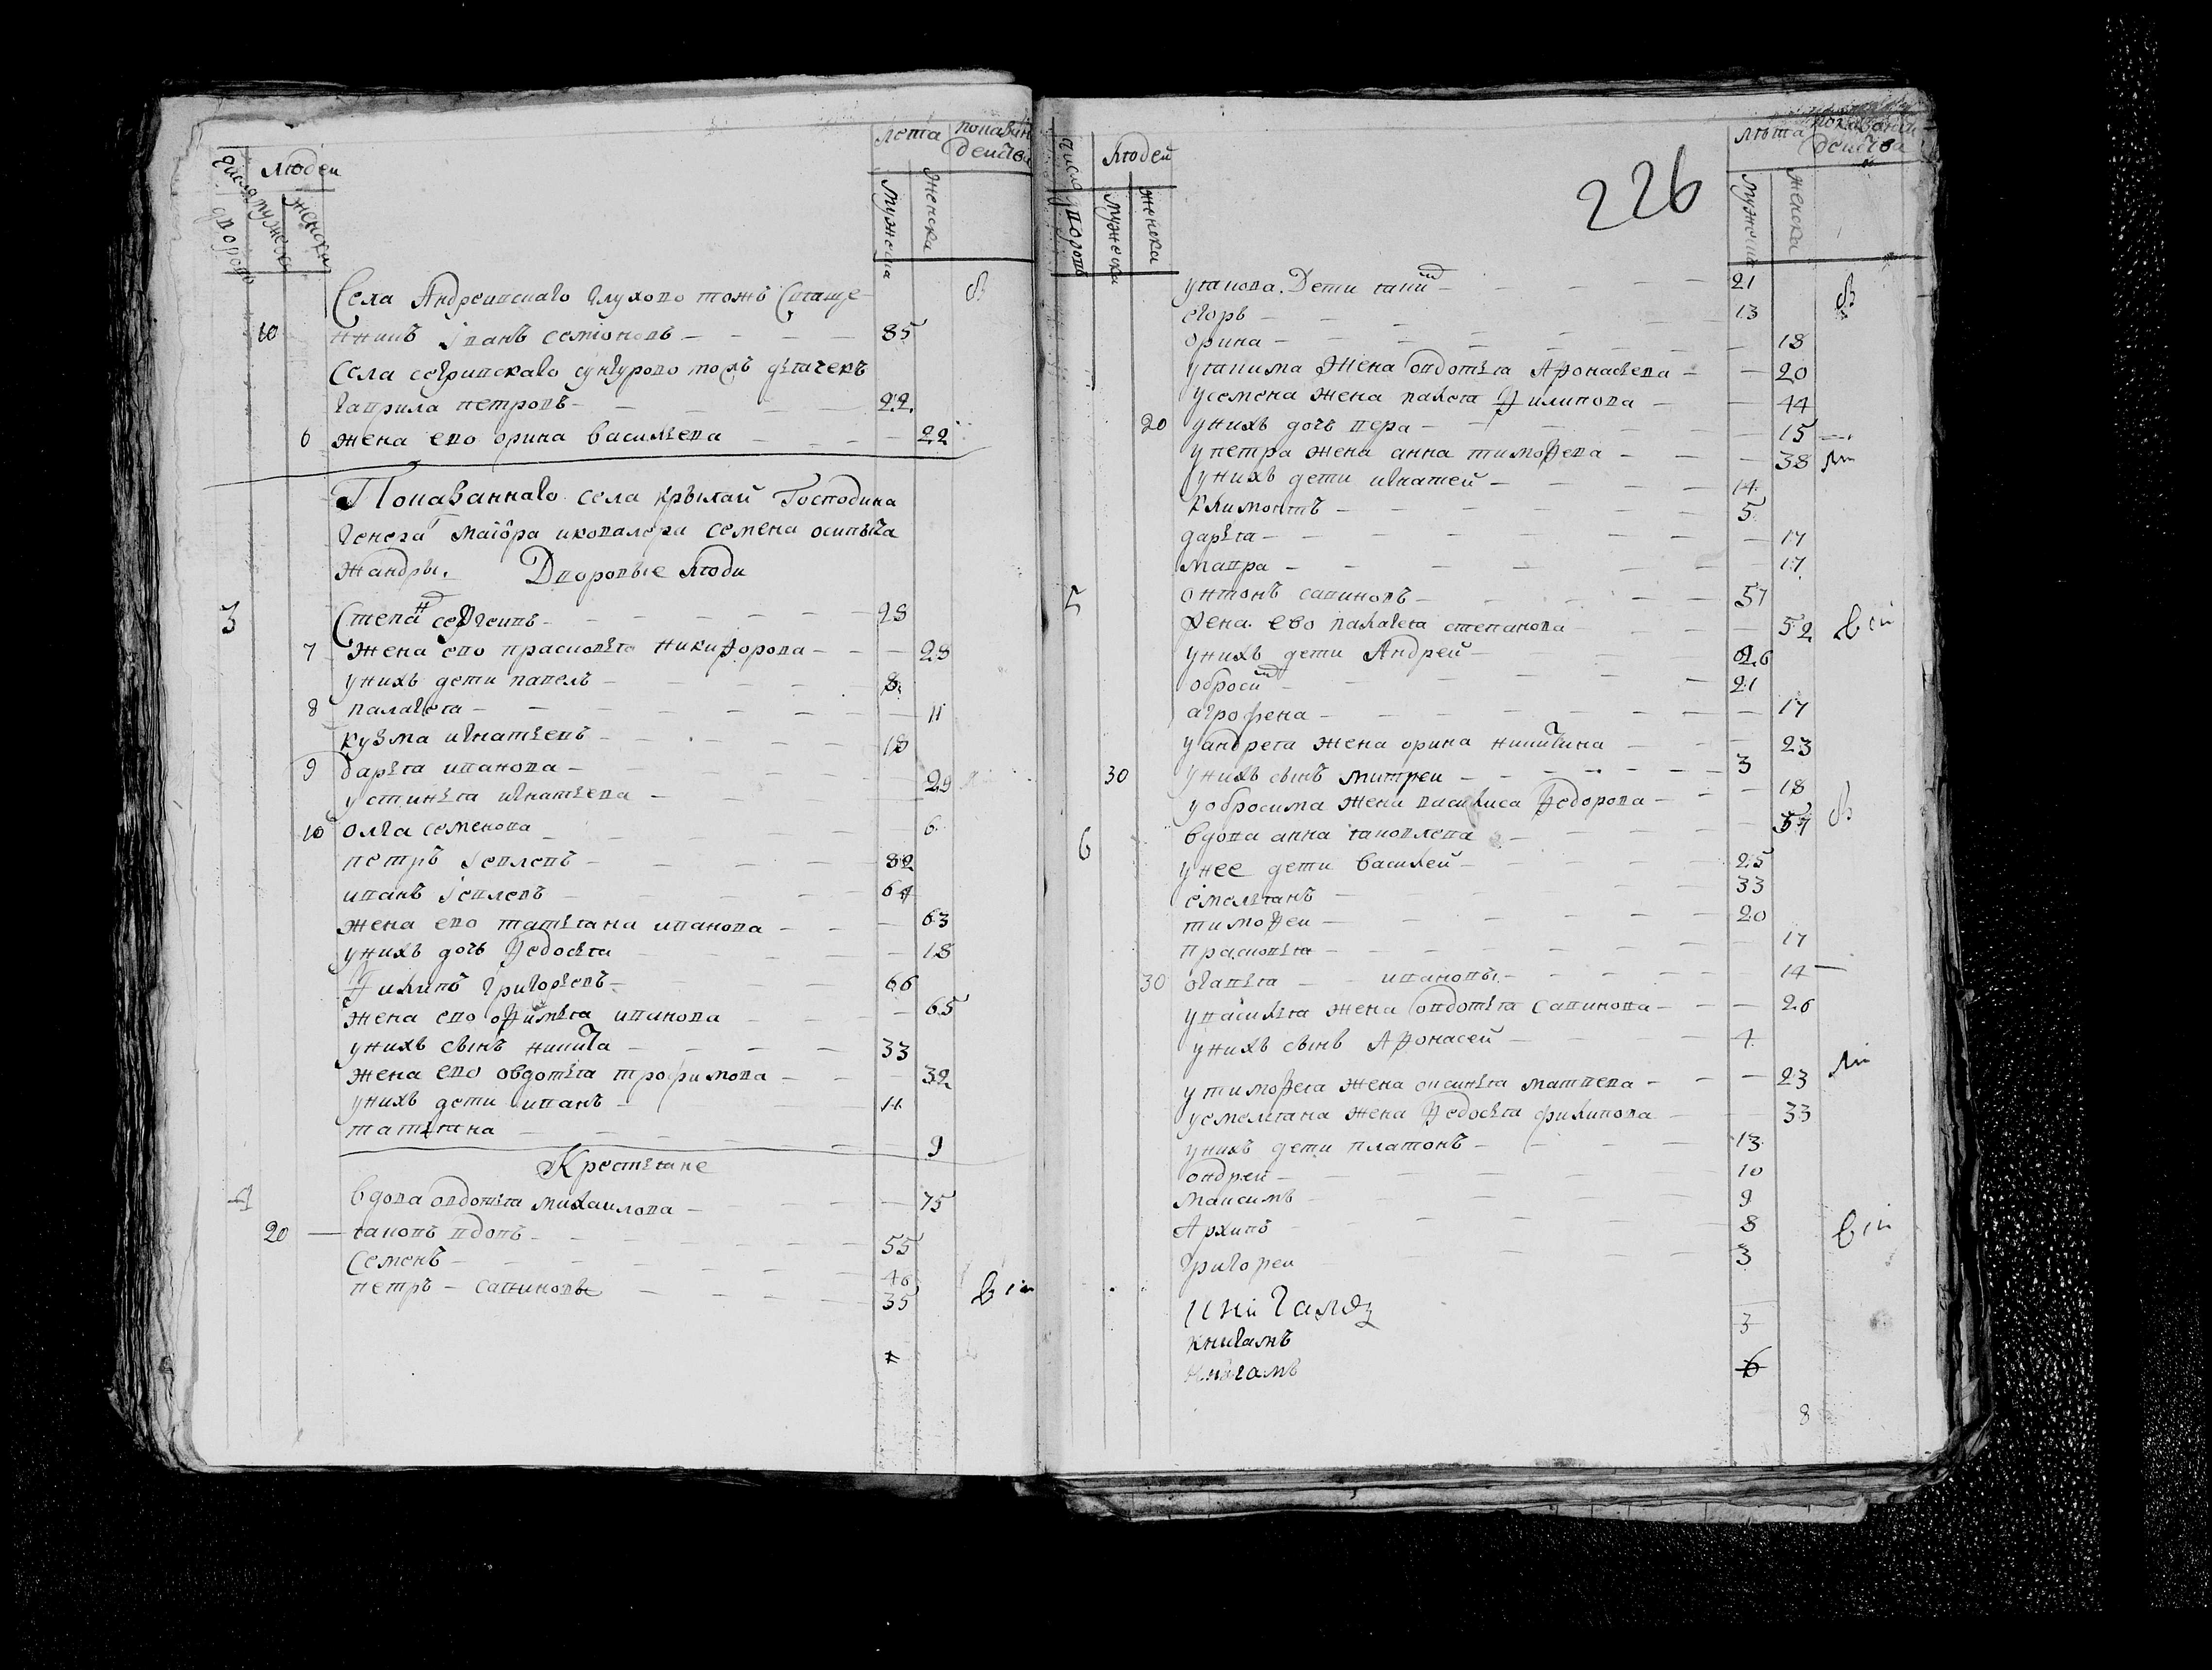 числа дворовъ
людей
мужеска
женска
лета
мужеска
женска
Села Андреевскаго Глухово тожъ Священ
10 нникъ Иванъ семіоновъ 85
Села сергивскаго сунгурово тожъ дьячекъ
гаврила петровъ 22
6 жена ево орина васильева 22
Показаннаго села крылай Господина
Генера маіора икавалера семена осипыча
жандры. Дворовые люди
3 Степан сергеивъ 28
7 жена ево прасковья никифорова 28
унихъ дети павелъ 8
8 палагея 11
кузма игнатьевъ 18
9 дарья иванова 29
устинья игнатьева
10 олга семенова 6
петръ Iевлевъ 82
иванъ Iевлевъ 64
жена ево татьяна иванова 63
унихъ дочь федосья 18
Филипъ григорьевъ 66
жена ево офимья иванова 65
унихъ сынъ никита 33
жена ево овдотья трофимова 32
унихъ дети иванъ 11
татьяна 9
Крестьяне
4 вдова овдотья михаилова 75
20 яковъ вдовъ 55
Семенъ 46
петръ савиновы 35
226
числа дворовъ
людей
мужеска
женска
лѣта
мужеска
женска
уякова. Дети яким 21
егоръ 13
орина 18
уякима жена овдотья Афонасьева 20
усемена жена палагея Филипова 44
20 унихъ дочь вера 15
упетра жена анна тимофева 38
унихъ дети игнатей 14
климонтъ 5
дарья 17
мавра 17
5 онтонъ савиновъ 57
жена ево палагея степанова 52
унихъ дети Андрей 26
обросим 21
агрофена 17
уандрея жена орина никитина 23
30 унихъ сынъ митреи 3
уобросима жена василиса федорова 18
6 вдова анна яковлева 57
унее дети василей 25
емельянъ 33
тимофеи 20
прасковья 17
30 огапья ивановы 14
увасилья жена овдотья савинова 26
унихъ сынъ Афонасей 4
утимофея жена оксинья матвева 23
уемельяна жена федосья филипова 33
унихъ дети платонъ 13
ондреи 10
максимъ 9
Архипъ 8
григореи 3
книгамъ
книгамъ
8